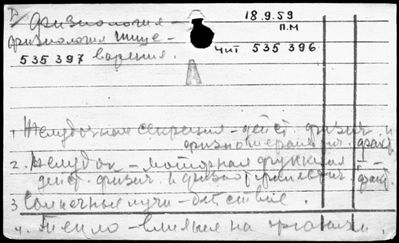 Физиология –
18.9.59
П.М
физиология пище-
варения.
535 397
Чит 535 396
1. Желудочная секреция – дейст. физич. и
физиотерапевтич. факт.
2. Желудок – моторная функция –
дейст. физич. и физиотерапевтич. факт.
3 Солнечные лучи – действие.
4. Тепло – влияние на организм.